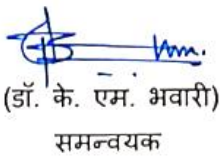 (डॉ. के. एम. भवारी)
समन्वयक